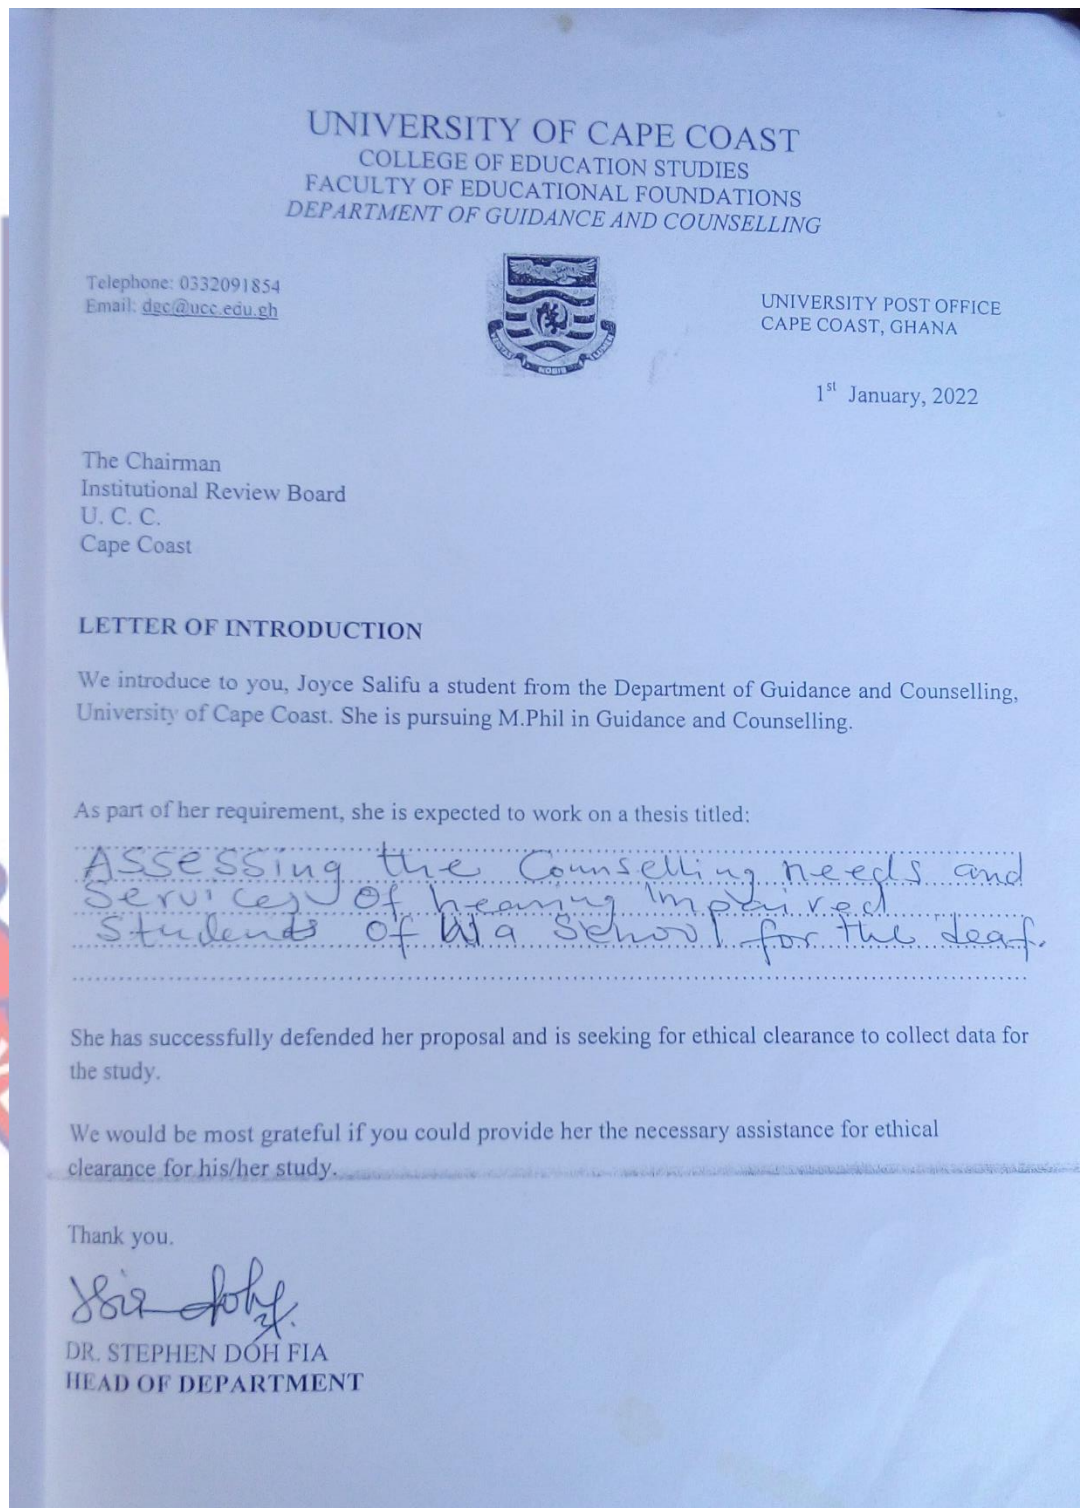 UNIVERSITY OF CAPE COAST
COLLEGE OF EDUCATION STUDIES
FACULTY OF EDUCATIONAL FOUNDATIONS
DEPARTMENT OF GUIDANCE AND COUNSELLING
Telephone: 0332091854
Email: dgc@ucc.edu.gh
VERITAS NOBIS LUMEN
UNIVERSITY POST OFFICE
CAPE COAST, GHANA
1st January, 2022
The Chairman
Institutional Review Board
U. C. C.
Cape Coast
LETTER OF INTRODUCTION
We introduce to you, Joyce Salifu a student from the Department of Guidance and Counselling,
University of Cape Coast. She is pursuing M.Phil in Guidance and Counselling.
As part of her requirement, she is expected to work on a thesis titled:
Assessing the Counselling needs and
Services Of hearing Impaired
Students Of Wa School for the deaf.
She has successfully defended her proposal and is seeking for ethical clearance to collect data for
the study.
We would be most grateful if you could provide her the necessary assistance for ethical
clearance for his/her study.
Thank you.
DR. STEPHEN DOH FIA
HEAD OF DEPARTMENT